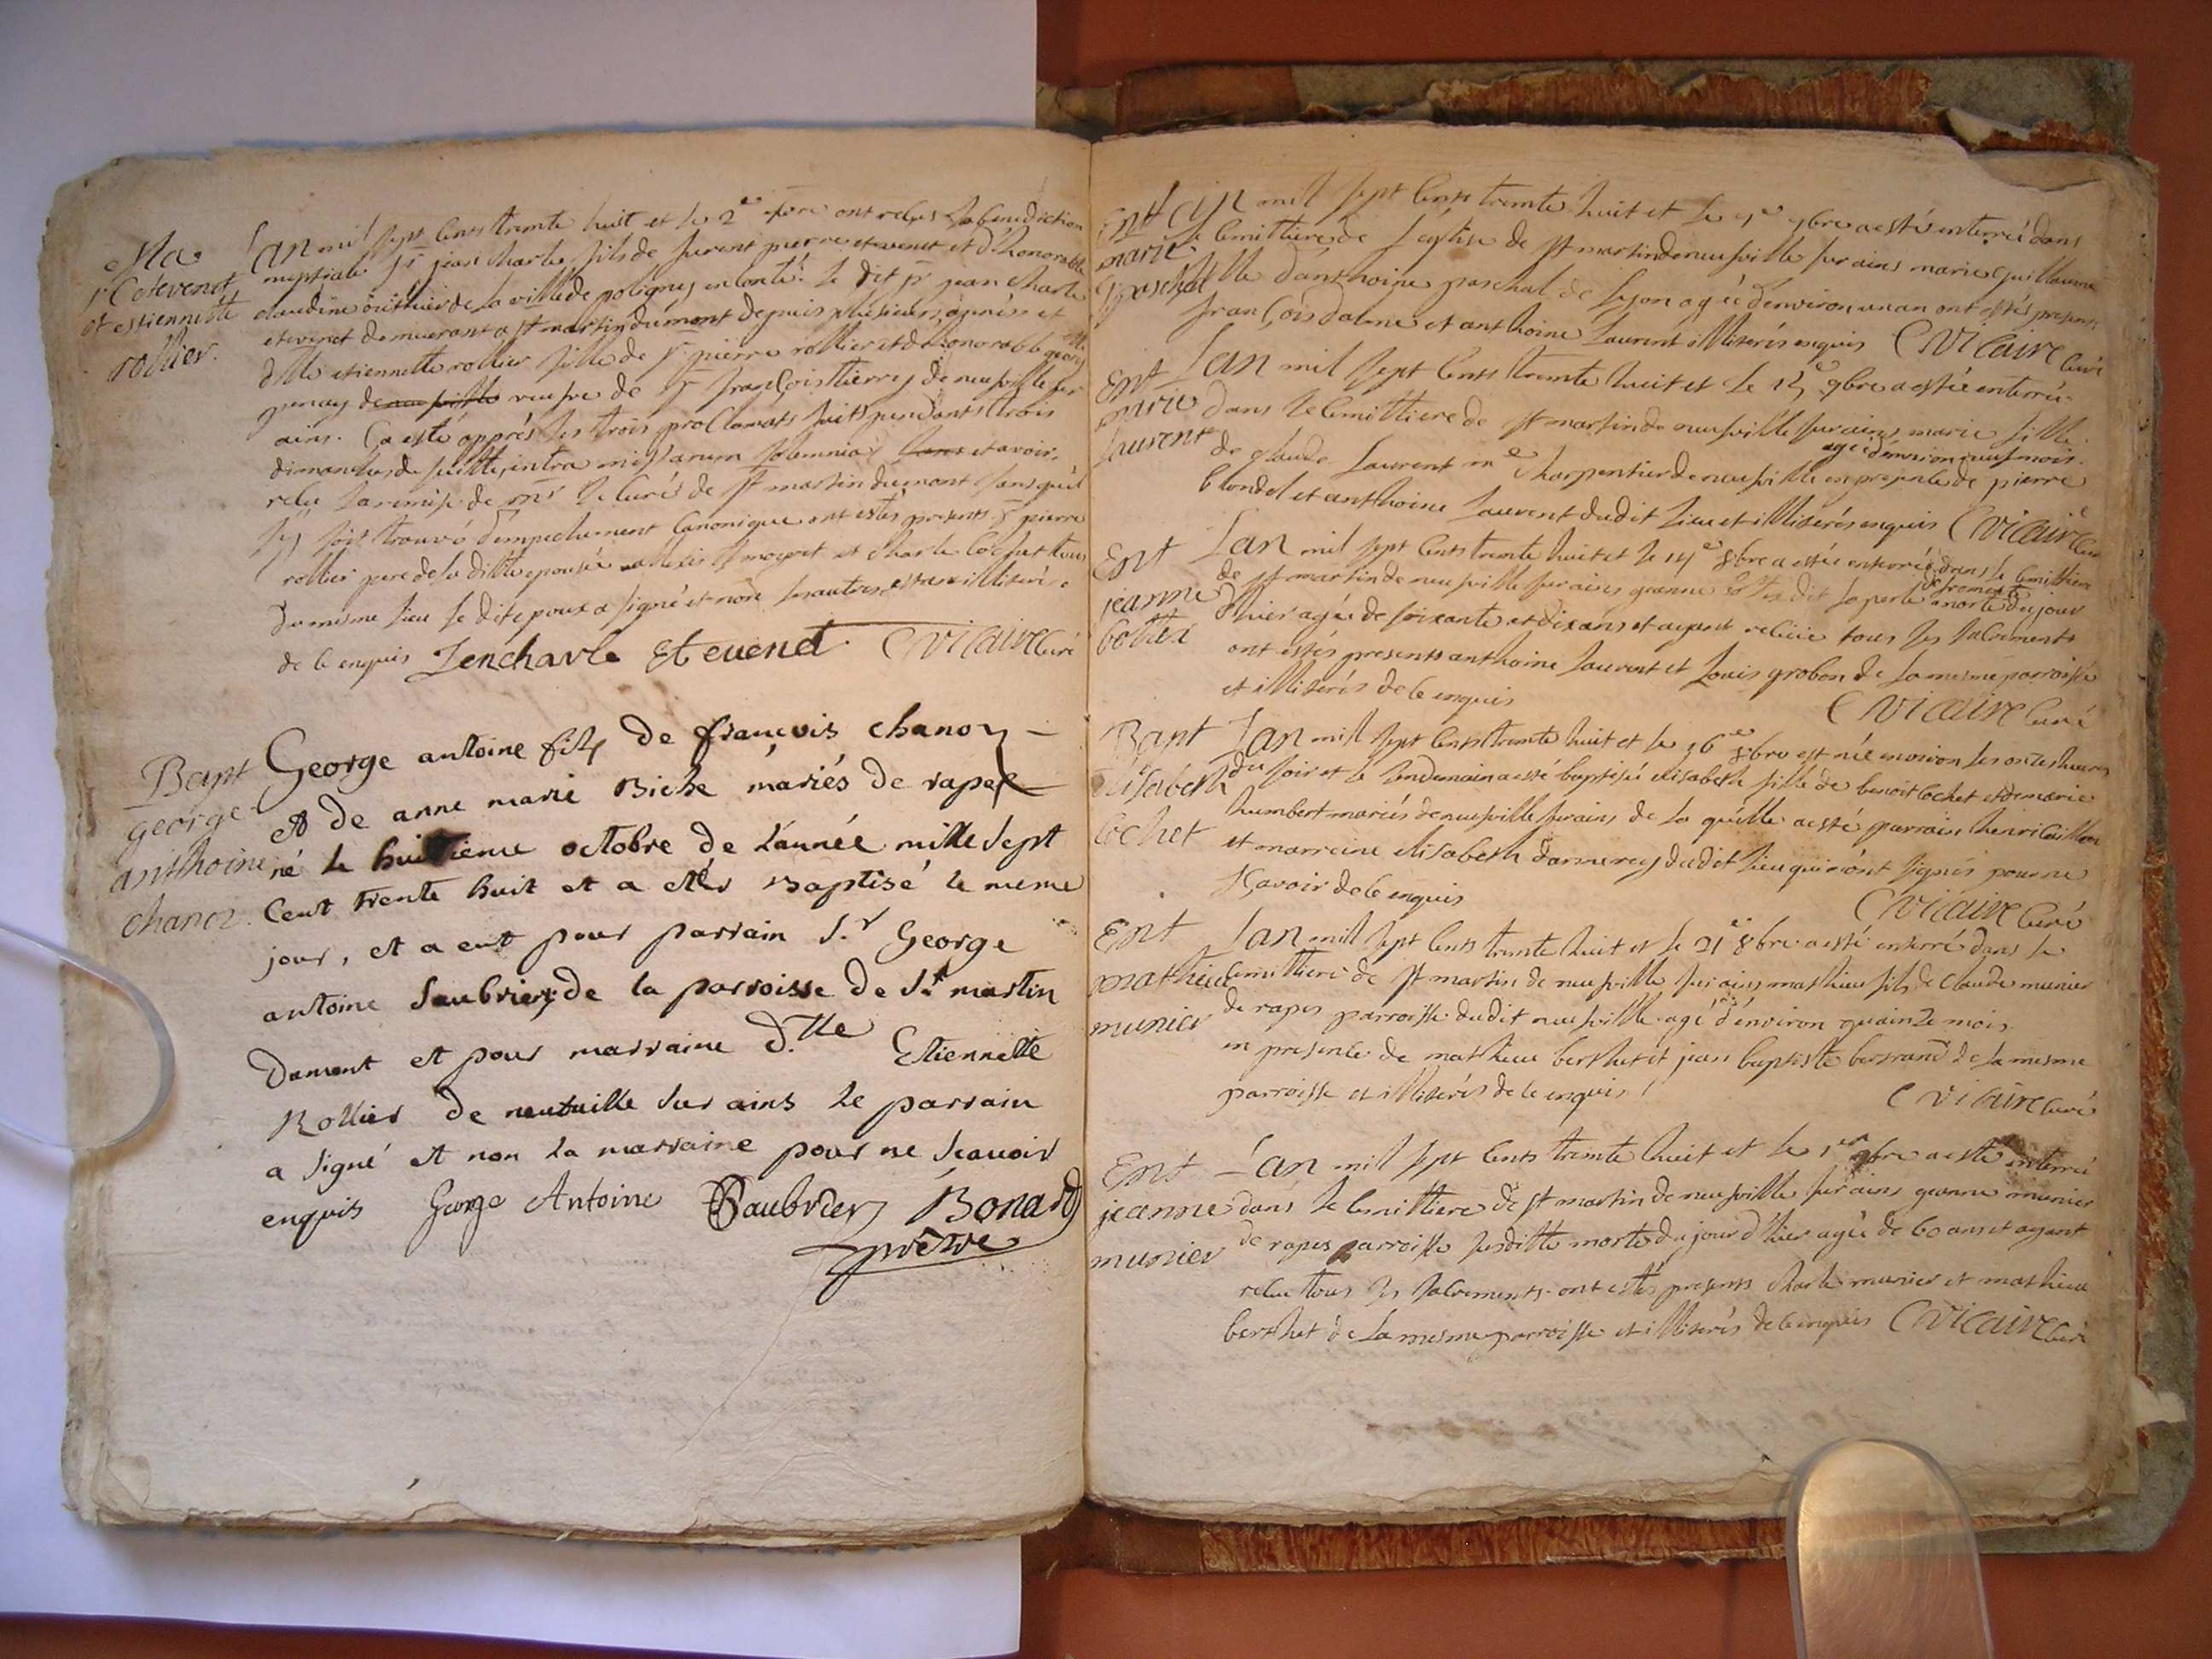 Ma.
Sr C etevenot
et estiennette
rollier.
Lan mil sept cents trente huit et le 2e ont reçus la benediction
nuptiale Sr jean charle fils de furent pierre etevenot et d'honorable
claudine de la ville de poligny en comté. le dit Sr jean charle
etevenot demeurant a st martin du mont depuis plusieurs années et
dlle etiennette rollier fille de Sr pierre rollier et d'honorable
de neufville veufve de Sr françois tierry de neufville sur
ains. Ca esté apprés les trois proclamats faits pendants trois
dimanches de suitte, intra missarum solemnia et avoir
reçu la remise de mr le curé de st martin du mont sans qu'il
sy soit trouvé d'empechement canonique ont estés presents Sr pierre
rollier pere de la ditte epousée moyret et charle
du mesme lieu le dit epoux a signé et non les autres illiterés
de ce enquis Jencharle Etevenot CVicaire curé
Bapt
george
anthoine
chanoz.
George antoine filz de françois chanoz
et de anne marie Biche mariés de rape
né le huitieme octobre de l'année mille sept
cent trente huit et a etés Baptisé le meme
jour, et a eut pour parrain S.r George
antoine Saubriez de la parroisse de St martin
dumont et pour marraine D.lle Etiennette
Rollier de neufuille sur ains le parrain
a signé et non la marraine pour ne scauoir
enquis George Antoine Saubriez Bonard
prêtre
Ent
marie
paschal
Lan mil sept cents trente huit et le 9bre a esté enterré dans
le cemittiere de l'eglise de st martin de neufville sur ains marie guillaume
fille d'anthoine paschal de lyon agée d'environ un an ont estés presents
françois dalme et anthoine laurent illiterés enquis CVicaire curé
Ent
marie
laurent
Lan mil sept cents trente huit et le 15e 9bre a estée enterrée
dans le cemittiere de st martin de neufville sur ains marie fille
agée d'environ neuf mois.
de glaude laurent me charpentier de neufville en presence de pierre
blondel et anthoine laurent dudit lieu et illiterés enquis CVicaire curé
Ent
jeanne
Lan mil sept cents trente huit et le 14e 8bre a estée enterrée dans le cemittiere
de st martin de neufville sur ains jeanne dit la perle morte du jour
d'hier agée de soixante et dix ans et ayant reçüe tous les sacrements
ont estés presents anthoine laurent et louis grobon de la mesme parroisse
et illiterés de ce enquis
CVicaire curé
Bapt
elisabeth
cochet
Lan mil sept cents trente huit et le 16e 8bre est née environ les onze heures
du soir et le lendemain a esté baptisée elisabeth fille de benoit cochet et de marie
humbert mariés de neufville sur ains de la quelle a esté parrain henri caillon
et marraine elisabeth darmerey dudit lieu qui n'ont signés pour ne
sçavoir de ce enquis
CVicaire curé
Ent
mathieu
munier
Lan mil sept cents trente huit et le 21e 8bre a esté enterré dans le
cemittiere de st martin de neufville sur ains mathieu fils de claude munier
de rapes parroisse dudit neufville agé d'environ quainze mois
en presence de mathieu berthet et jean baptiste bertrand de la mesme
parroisse et illiterés de ce enquis
CVicaire curé
Ent
jeanne
munier
Lan mil sept cents trente huit et le 1er 9bre a esté enterrée
dans le cemittiere de st martin de neufville sur ains jeanne munier
de rapes parroisse susditte morte du jour d'hier agée de 60 ans et ayant
reçüe tous les sacrements. ont estés presents charle munier et mathieu
berthet de la mesme parroisse et illiterés de ce enquis CVicaire curé